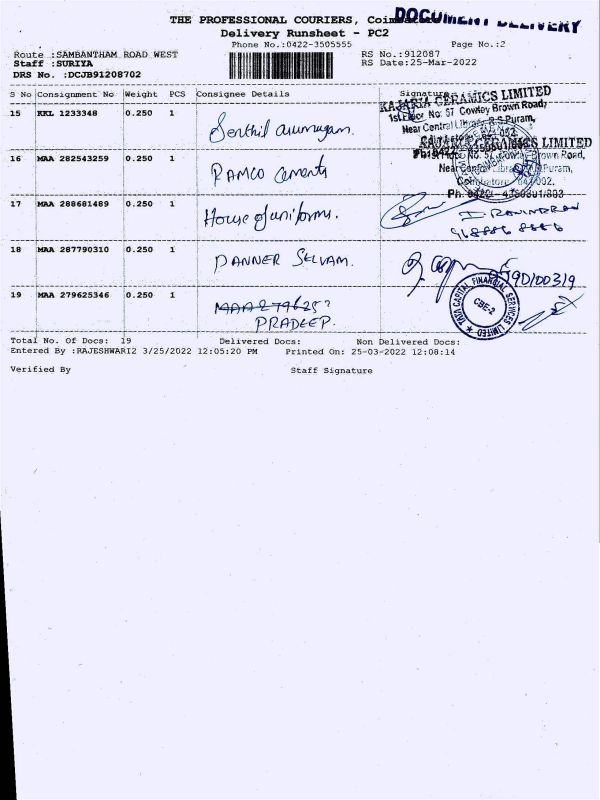 DOCUMENT DELIVERY
THE PROFESSIONAL COURIERS, Coimbatore
Delivery Runsheet - PC2
Phone No.:0422-3505555 Page No.:2
Route :SAMBANTHAM ROAD WEST RS No.:912087
Staff :SURIYA RS Date:25-Mar-2022
DRS No. :DCJB91208702
S No Consignment No Weight PCS Consignee Details Signature
KAJARIA CERAMICS LIMITED
1st Floor No: 57 Cowley Brown Road,
Near Central Library, R.S.Puram,
15 KKL 1233348 0.250 1 Senthil arumugam.
KAJARIA CERAMICS LIMITED
1st Floor No. 57, Cowley Brown Road,
Near Central Library, R.S.Puram,
16 MAA 282543259 0.250 1 RAMCO Cements
Coimbatore - 641 002.
17 MAA 288681489 0.250 1 House of uniforms.
18 MAA 287790310 0.250 1 PANNER SELVAM.
19 MAA 279625346 0.250 1
PRADEEP.
TATA CAPITAL FINANCIAL SERVICES LIMITED
CBE-2
Total No. Of Docs: 19 Delivered Docs: Non Delivered Docs:
Entered By :RAJESHWARI2 3/25/2022 12:05:20 PM Printed On: 25-03-2022 12:08:14
Verified By Staff Signature